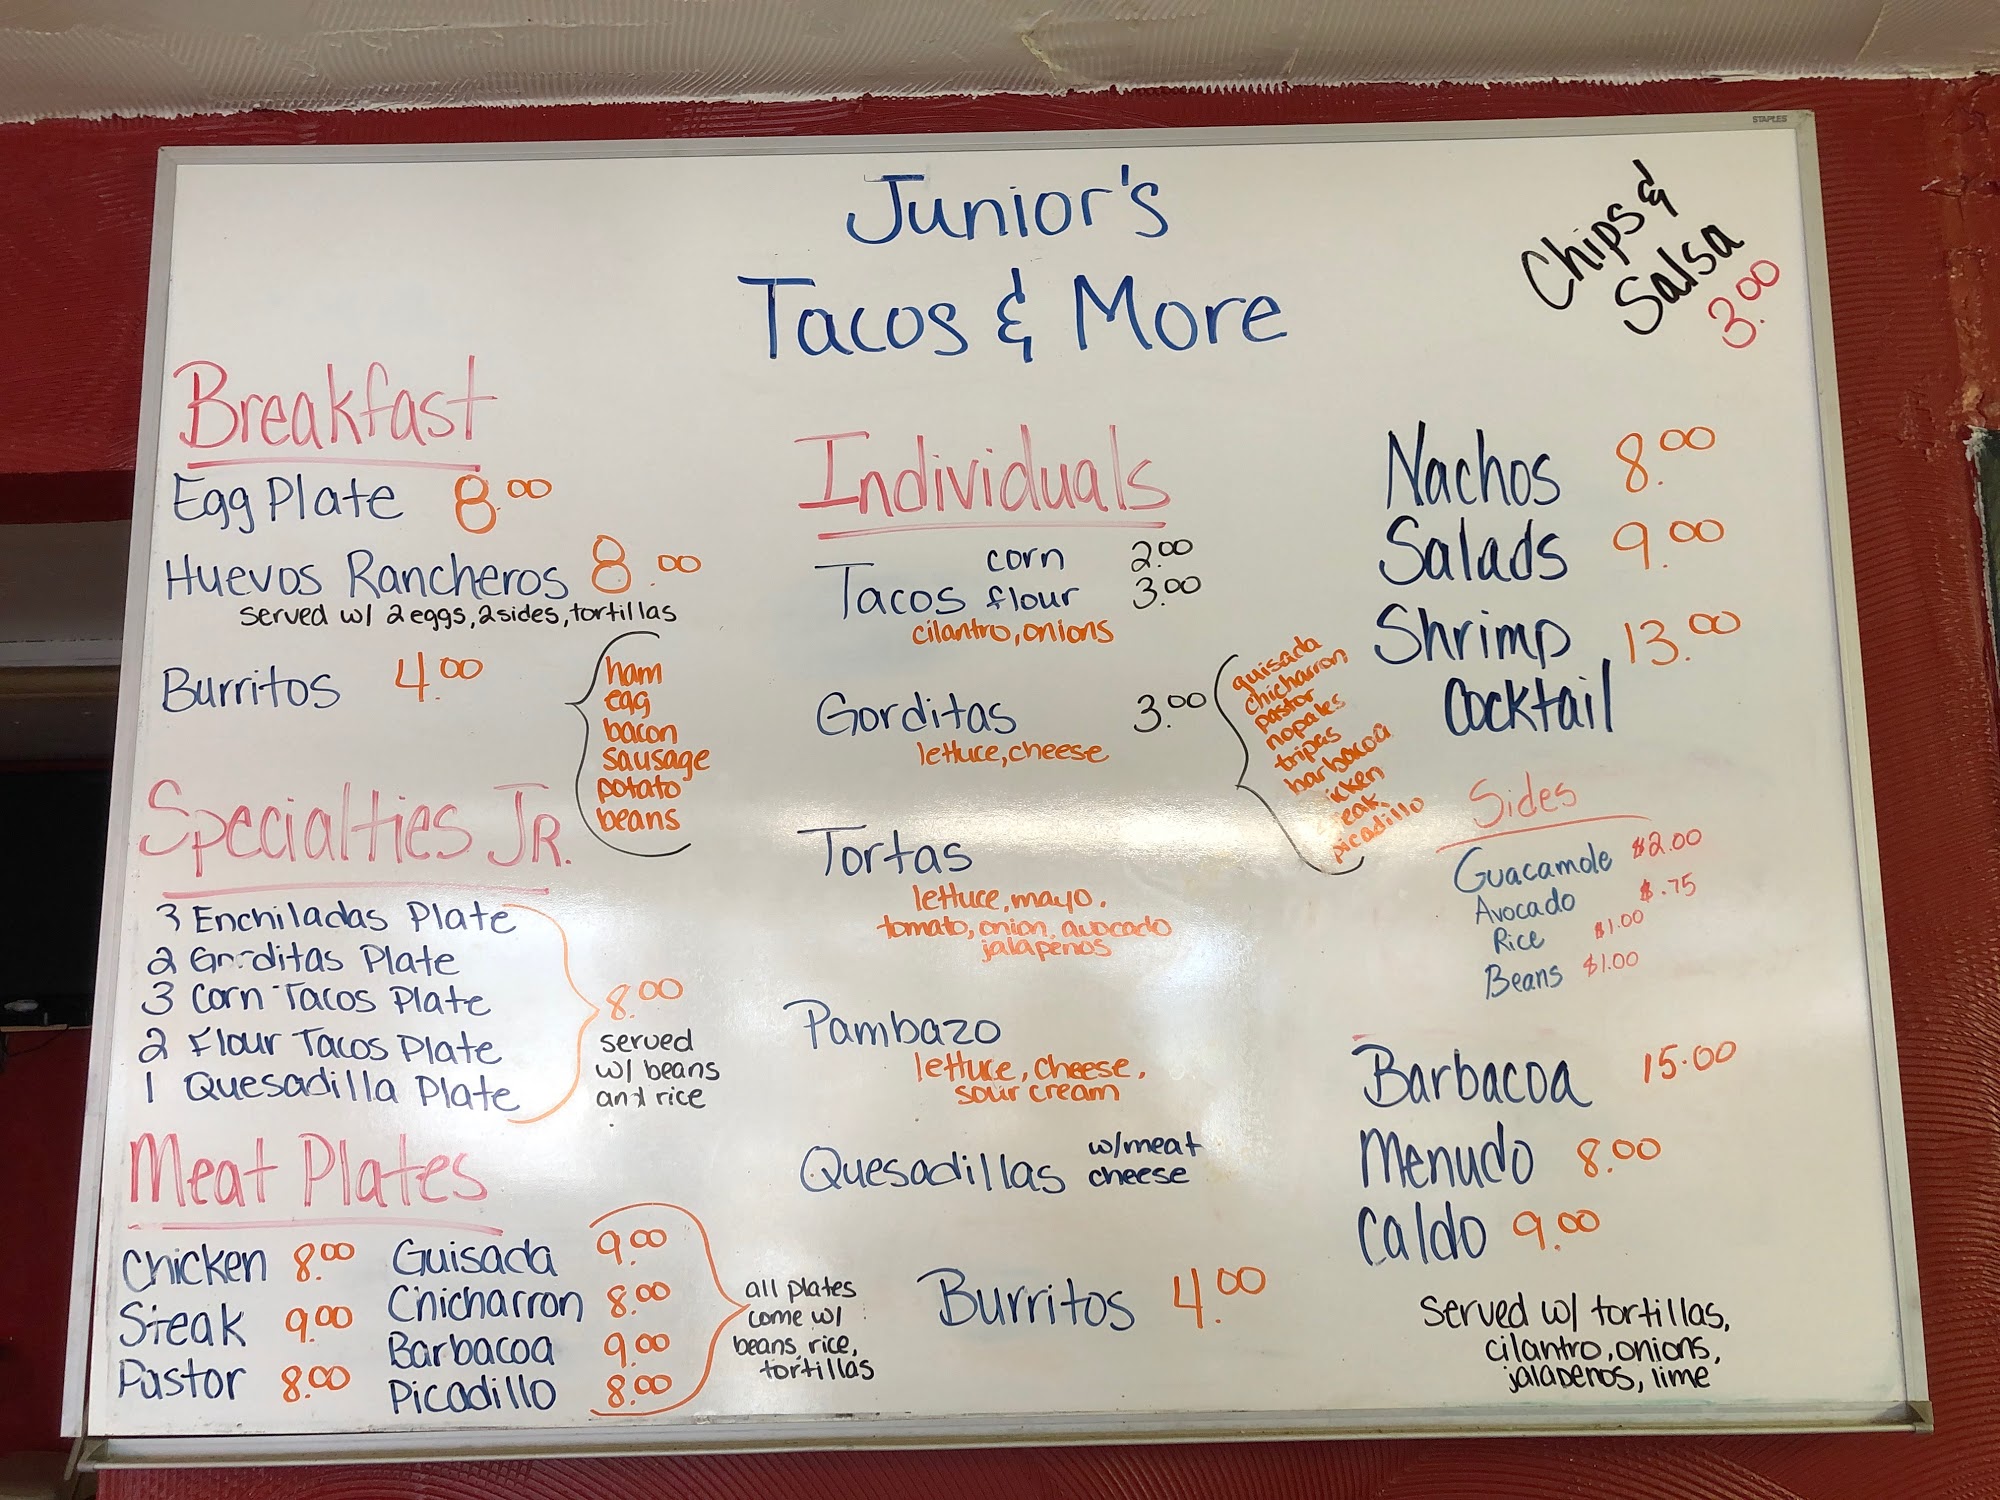 STAPLES
Junior's
Tacos & More
Chips &
Salsa
3.00
Breakfast
Egg Plate 8.00
Huevos Rancheros 8.00
served w/ 2 eggs, 2 sides, tortillas
Burritos 4.00
ham
egg
bacon
sausage
potato
beans
Specialties Jr.
3 Enchiladas Plate
2 Gorditas Plate
3 Corn Tacos Plate
2 Flour Tacos Plate
1 Quesadilla Plate
8.00
served
w/ beans
and rice
Meat Plates
Chicken 8.00
Steak 9.00
Pastor 8.00
Guisada 9.00
Chicharron 8.00
Barbacoa 9.00
Picadillo 8.00
all plates
come w/
beans, rice,
tortillas
Individuals
corn 2.00
Tacos flour 3.00
cilantro, onions
Gorditas 3.00
lettuce, cheese
guisada
chicharron
pastor
nopales
tripas
barbacoa
icken
eak
picadillo
Tortas
lettuce, mayo,
tomato, onion, avocado
jalapenos
Pambazo
lettuce, cheese,
sour cream
Quesadillas w/meat
cheese
Burritos 4.00
Nachos 8.00
Salads 9.00
Shrimp 13.00
Cocktail
Sides
Guacamole $2.00
Avocado $.75
Rice $1.00
Beans $1.00
Barbacoa 15.00
Menudo 8.00
Caldo 9.00
Served w/ tortillas,
cilantro, onions,
jalapenos, lime